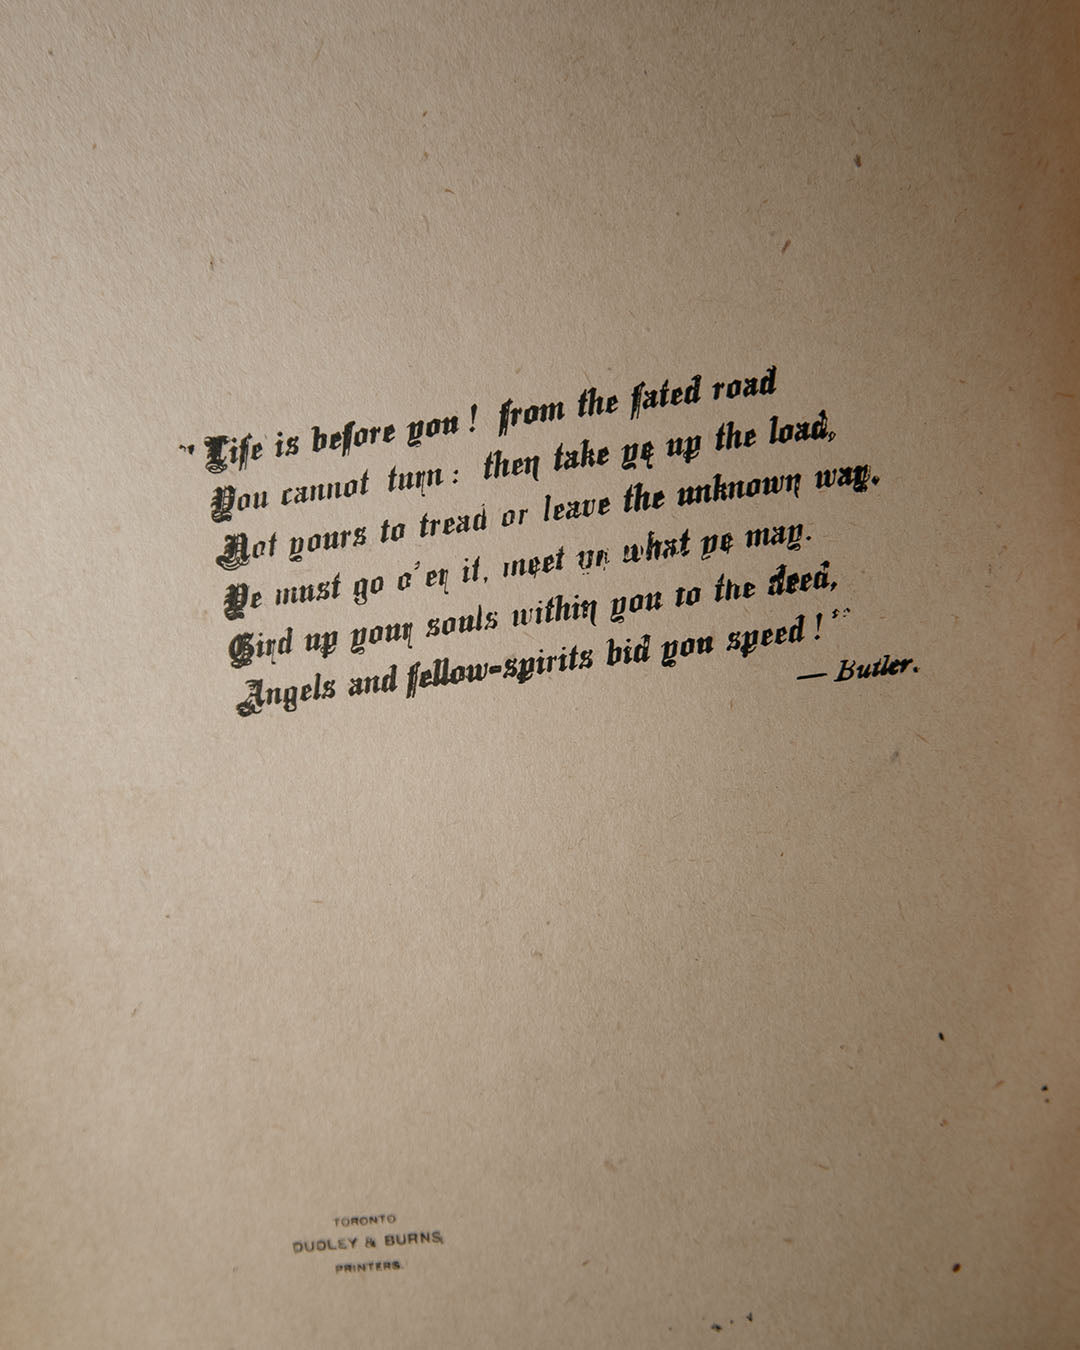 "Life is before you! from the fated road
You cannot turn: then take ye up the load,
Not yours to tread or leave the unknown way.
Ye must go o'er it, meet ye what ye may.
Gird up your souls within you to the deed,
Angels and fellow-spirits bid you speed!"
— Butler.
TORONTO
DUDLEY & BURNS,
PRINTERS.